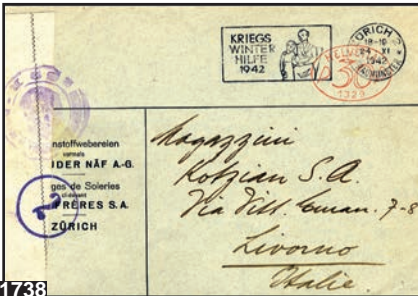 KRIEGS
WINTER
HILFE
1942
ZÜRICH 2
18-19
24 XI
1942
FRAUMÜNSTER
HELVETIA
30
1329
nstoffwebereien
vormals
IDER NÄF A.-G.
ges de Soieries
ci-devant
FRÈRES S.A.
ZÜRICH
Magazzini
Kotzian S.A.
Via Vitt. Eman. 7-8
Livorno
Italie.
1738